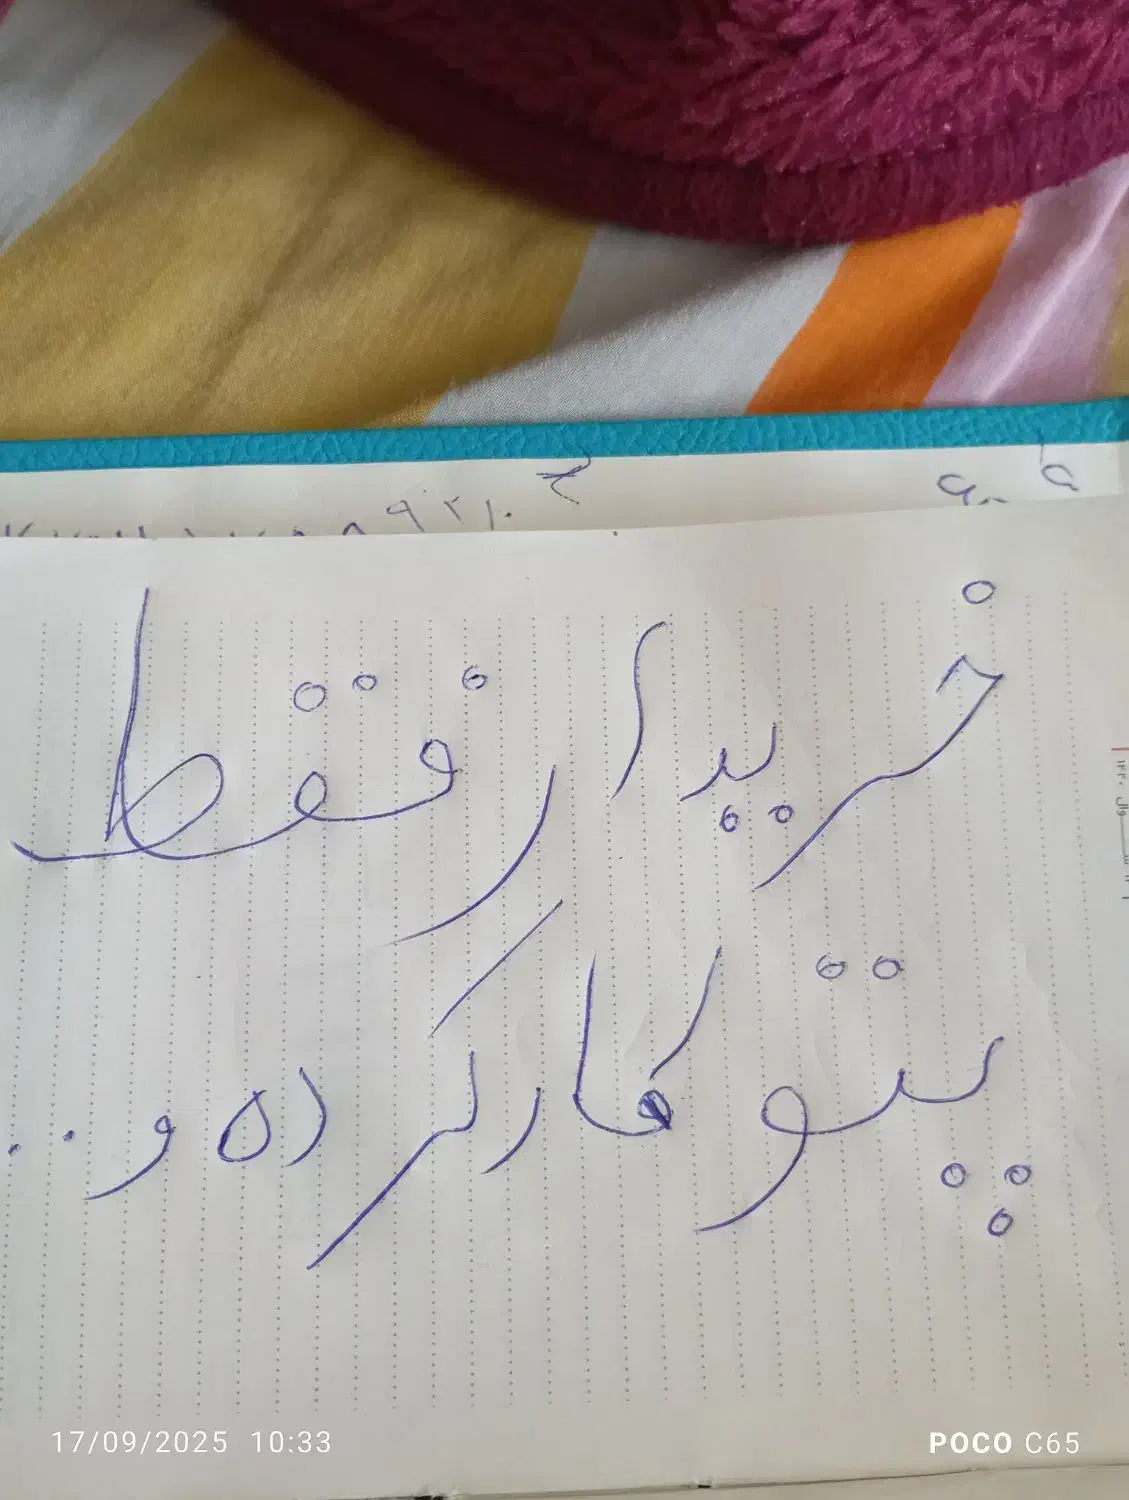 خریدار فقط
پتو کارکرده و..
17/09/2025 10:33
POCO C65